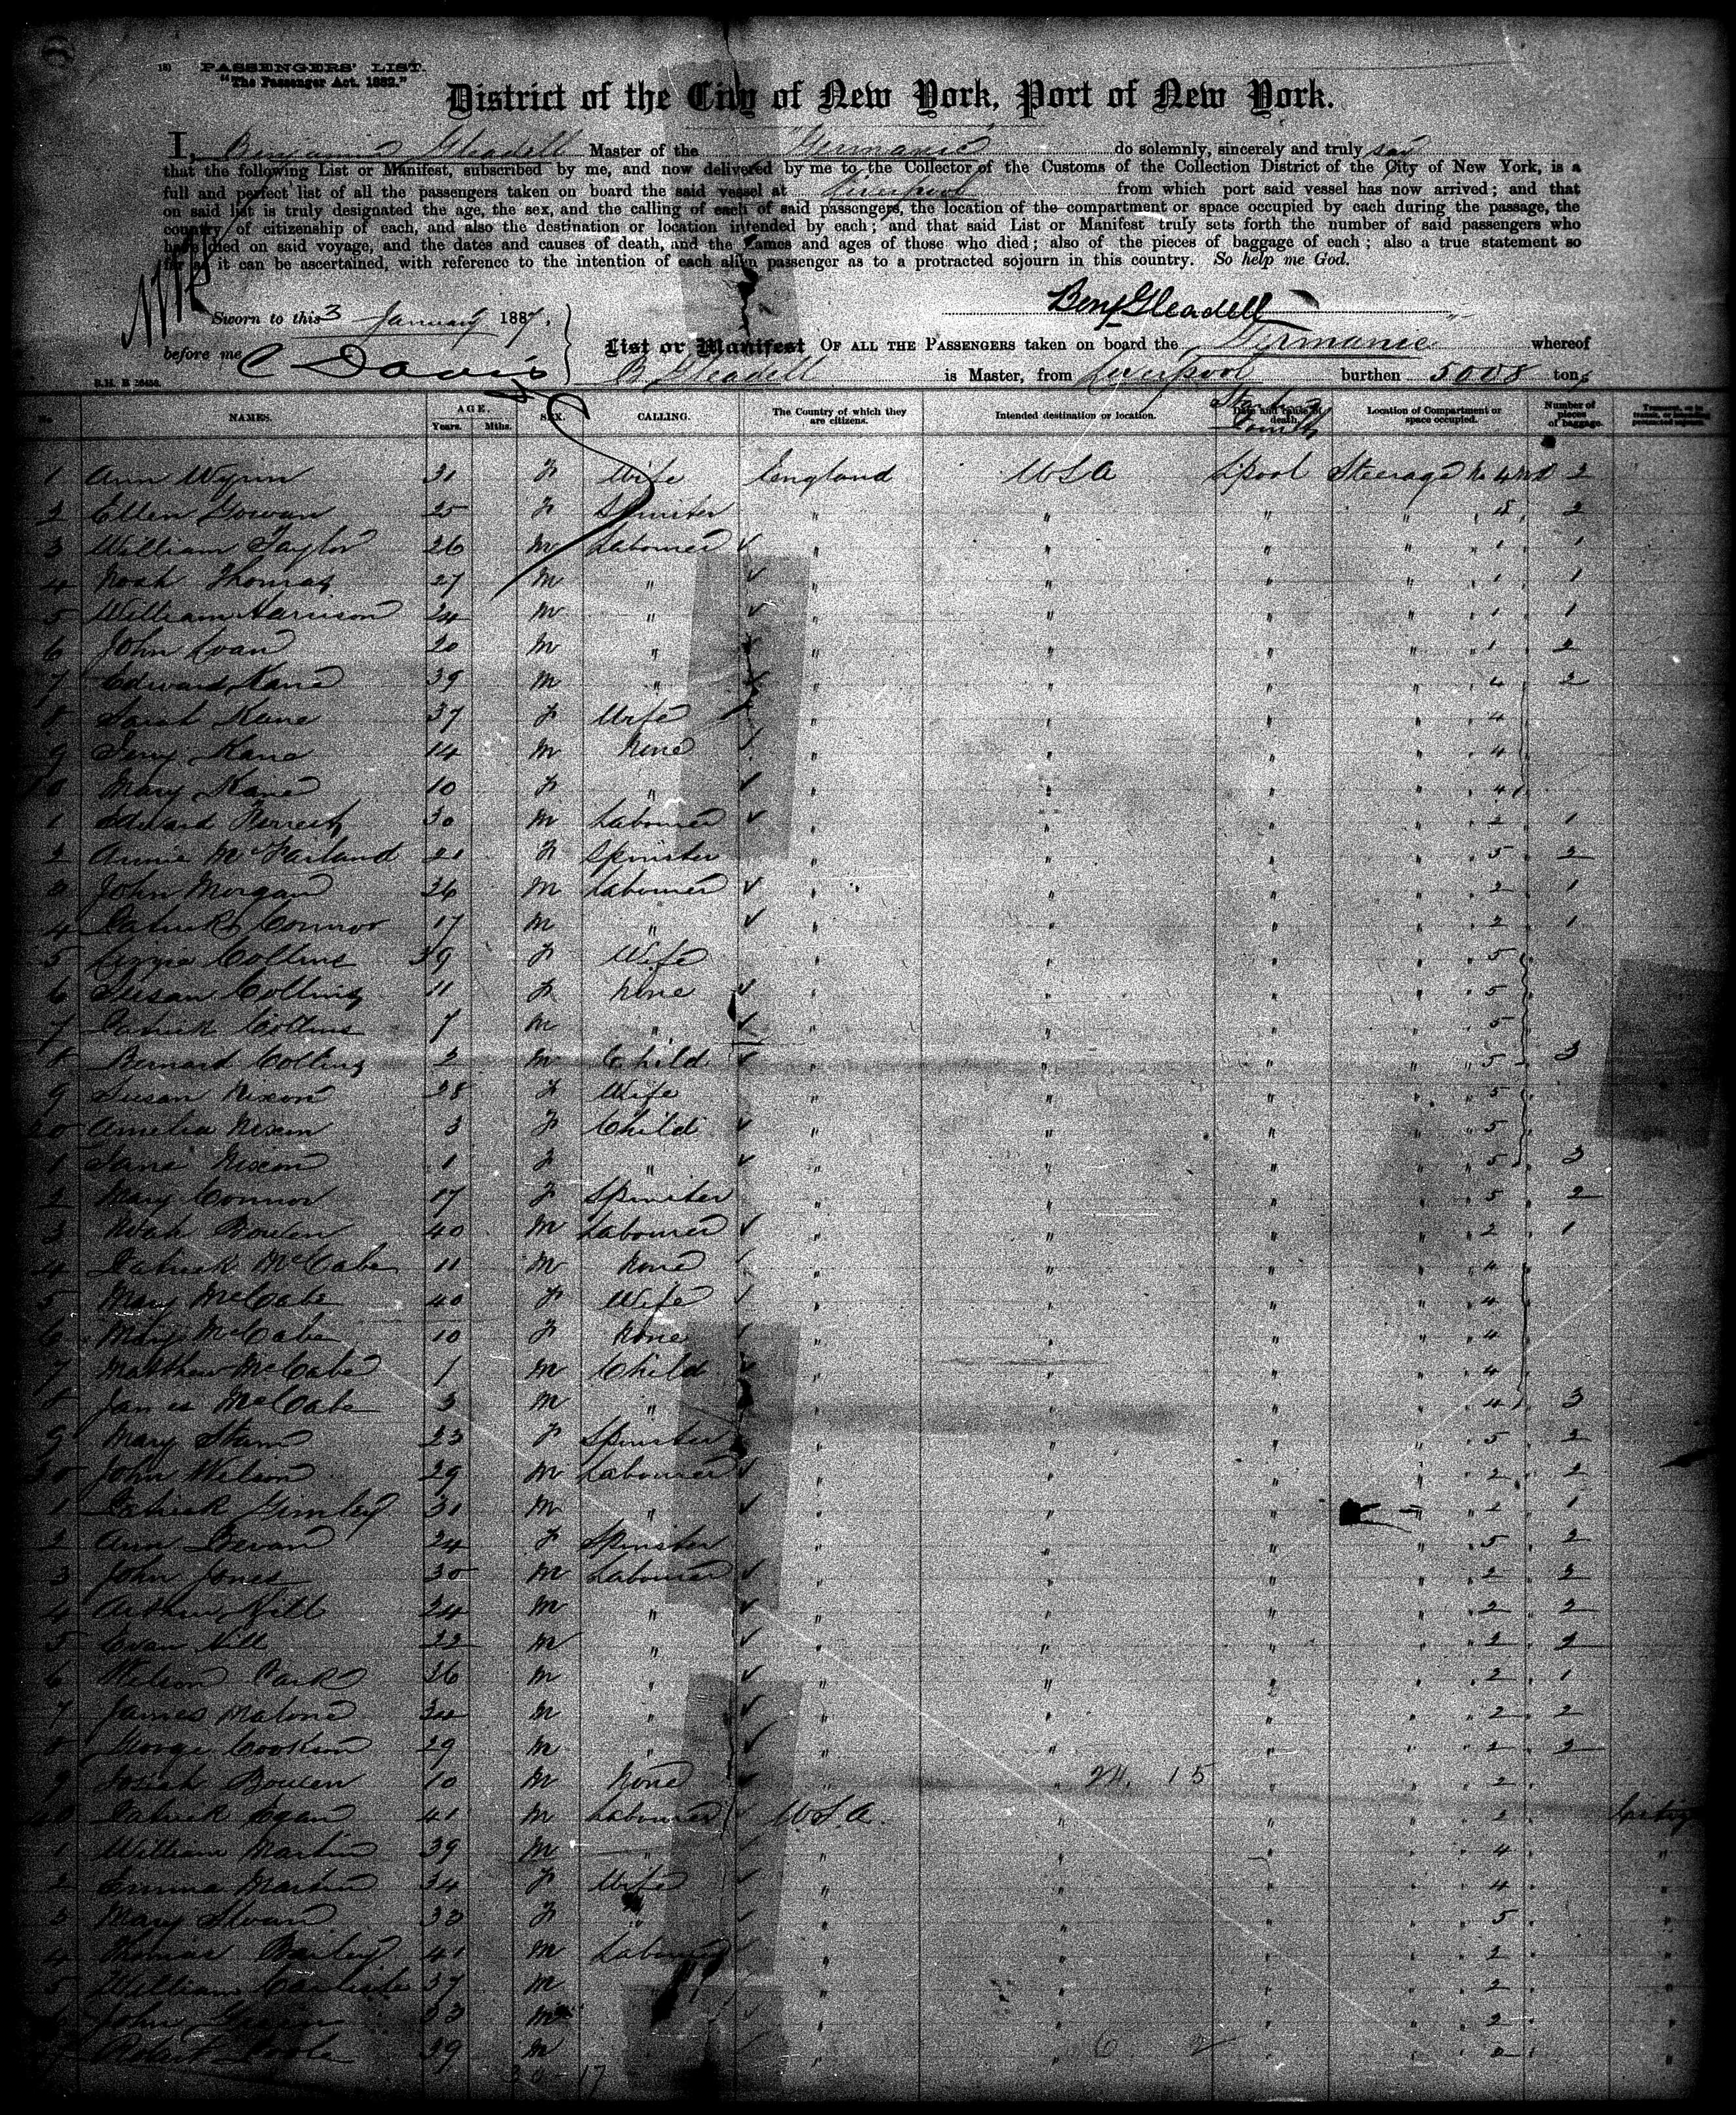 PASSENGERS' LIST.
"The Passenger Act, 1882."
District of the City of New York, Port of New York.
I, Benjamin Gleadell Master of the "Germanic" do solemnly, sincerely and truly
that the following List or Manifest, subscribed by me, and now delivered by me to the Collector of the Customs of the Collection District of the City of New York, is a
full and perfect list of all the passengers taken on board the said vessel at Liverpool from which port said vessel has now arrived; and that
on said list is truly designated the age, the sex, and the calling of each of said passengers, the location of the compartment or space occupied by each during the passage, the
country of citizenship of each, and also the destination or location intended by each; and that said List or Manifest truly sets forth the number of said passengers who
have died on said voyage, and the dates and causes of death, and the names and ages of those who died; also of the pieces of baggage of each; also a true statement so
far as it can be ascertained, with reference to the intention of each alien passenger as to a protracted sojourn in this country. So help me God.
Benj Gleadell
Sworn to this 3 January 1887,
before me C Davis
List or Manifest OF ALL THE PASSENGERS taken on board the Germanic whereof
B Gleadell is Master, from Liverpool burthen 5008 tons
No. NAMES. AGE. Years. Mths. SEX. CALLING. The Country of which they are citizens. Intended destination or location. Date and cause of death. Location of Compartment or space occupied. Number of pieces of baggage.
1 Ann Wynn 31 F Wife England USA Lpool Steerage No 4 2
2 Ellen Gowan 25 F Spinster " " " " 2
3 William Taylor 26 M Labourer " " " " 1 1
4 Noah Thomas 27 M " " " " " 1 1
5 William Harrison 24 M " " " " " 1 1
6 John Evan 20 M " " " " " 1 2
7 Edward Kane 39 M " " " " " 4 2
8 Sarah Kane 37 F Wife " " " " 4
9 Kane 14 M None " " " " 4
10 Mary Kane 10 F " " " " " 4
1 Edward 30 M Labourer " " " " 2 1
2 Annie McFarland 21 F Spinster " " " " 5 2
3 John Morgan 26 M Labourer " " " " 2 1
4 Patrick Connor 17 M " " " " " 2 1
5 Lizzie Collins 39 F Wife " " " " 5
6 Susan Collins 11 F None " " " " 5
7 Patrick Collins 7 M " " " " " 5
8 Bernard Collins 2 M Child " " " " 5 3
9 Susan Nixon 28 F Wife " " " " 5
20 Amelia Nixon 3 F Child " " " " 5
1 Jane Nixon 1 F " " " " " 5 3
2 Mary Connor 17 F Spinster " " " " 5 2
3 Noah Bowen 40 M Labourer " " " " 2 1
4 Patrick McCabe 11 M None " " " " 4
5 Mary McCabe 40 F Wife " " " " 4
6 Mary McCabe 10 F None " " " " 4
7 Matthew McCabe 1 M Child " " " " 4
8 James McCabe 3 M " " " " " 4 3
9 Mary Stam 23 F Spinster " " " " 5 2
30 John Wilson 29 M Labourer " " " " 2 2
1 Patrick Gimley 31 M " " " " 2 1
2 Ann Bevan 24 F Spinster " " " " 5 2
3 John Jones 30 M Labourer " " " " 2 2
4 Arthur Hill 24 M " " " " " 2 2
5 Evan Hill 22 M " " " " " 2 2
6 Wilson 36 M " " " " " 2 1
7 James Malone 34 M " " " " " 2 2
8 George Cookson 29 M " " " " " 2 2
9 Josiah Bowen 10 M None " " 24 15 " " 2
40 Patrick Egan 41 M Labourer U.S.A. " " " 2
1 William Martin 39 M " " " " " 4 "
2 Emma Martin 34 F Wife " " " " 4 "
3 Mary Sloan 33 F " " " " " 5 "
4 Thomas Bailey 41 M Labourer " " " " 2 "
5 William Carlisle 37 M " " " " 2 "
John Green 33 M " " " " 2 "
Robert 39 M " " 6 2 " " 2 "
30 - 17